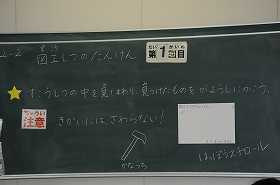 2-2
図工しつのたんけん
ずこう
だい
第1回目
かいめ
ずこうしつの中を見てまわり、見つけたものをがようしにかこう。
ちゅうい
注意
きかいには、さわらない！
かなづち
はっぽうスチロール